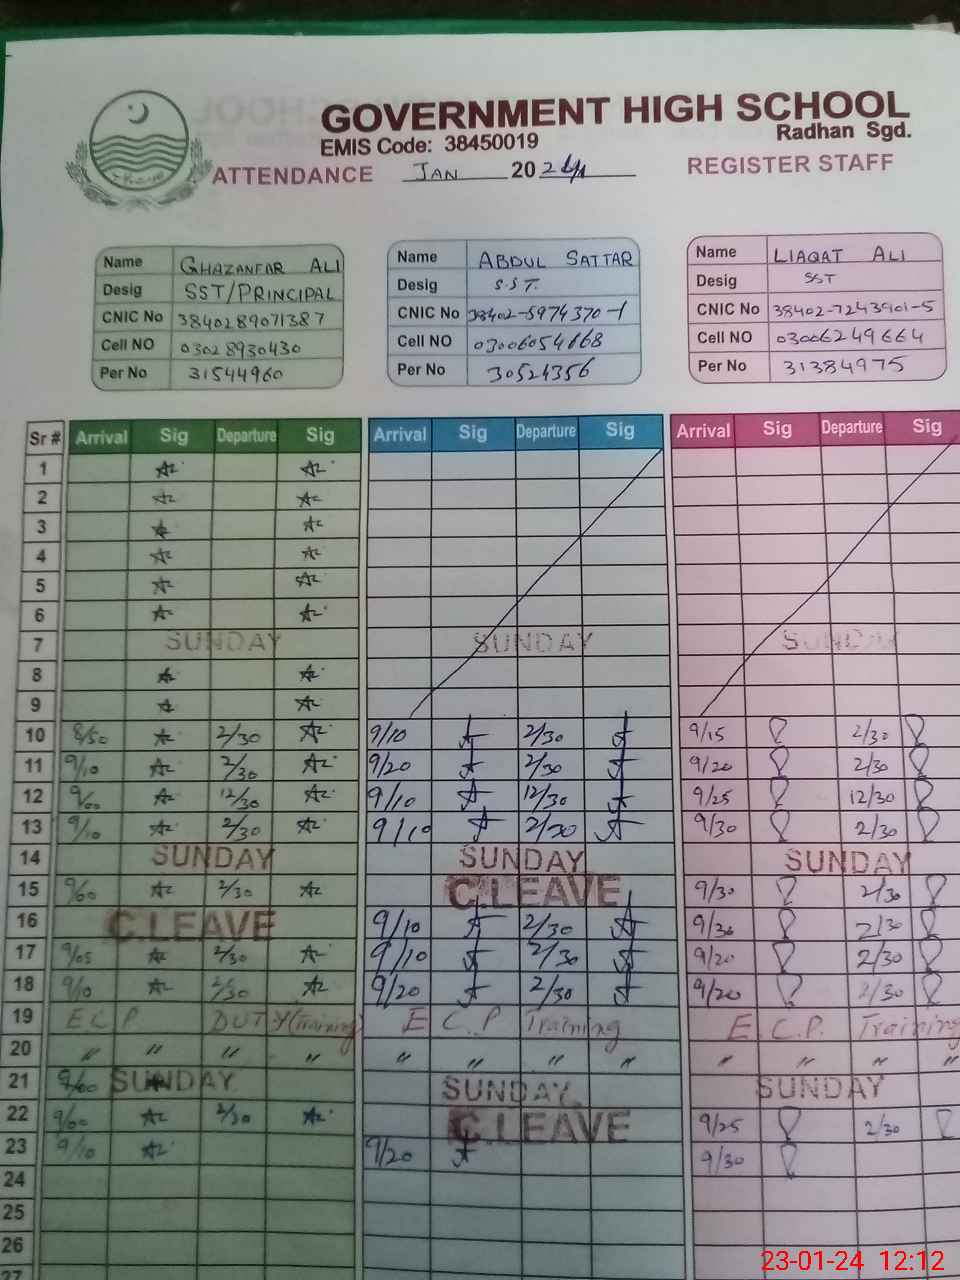 GOVERNMENT HIGH SCHOOL
Radhan Sgd.
EMIS Code: 38450019
ATTENDANCE JAN 2024 REGISTER STAFF
Name GHAZANFAR ALI
Desig SST/PRINCIPAL
CNIC No 3840289071387
Cell NO 03028930430
Per No 31544960
Name ABDUL SATTAR
Desig S.S.T.
CNIC No 38402-5974370-1
Cell NO 03006054668
Per No 30524356
Name LIAQAT ALI
Desig SST
CNIC No 38402-7243901-5
Cell NO 03006249664
Per No 31384975
Sr # Arrival Sig Departure Sig Arrival Sig Departure Sig Arrival Sig Departure Sig
1
2
3
4
5
6
7 SUNDAY SUNDAY SUNDAY
8
9
10 8/50 2/30 9/10 2/30 9/15 2/30
11 9/10 2/30 9/20 2/30 9/20 2/30
12 9/00 12/30 9/10 12/30 9/25 12/30
13 9/10 2/30 9/10 2/30 9/30 2/30
14 SUNDAY SUNDAY SUNDAY
15 9/00 2/30 C.LEAVE 9/30 2/30
16 C.LEAVE 9/10 2/30 9/30 2/30
17 9/05 2/30 9/10 2/30 9/20 2/30
18 9/10 2/30 9/20 2/30 9/20 2/30
19 E C P DUTY (Training) E C.P Training E.C.P. Training
20 " " " " " " " " " " " "
21 9/00 SUNDAY SUNDAY SUNDAY
22 9/00 2/30 C.LEAVE 9/25 2/30
23 9/10 9/20 9/30
24
25
26
27
23-01-24 12:12